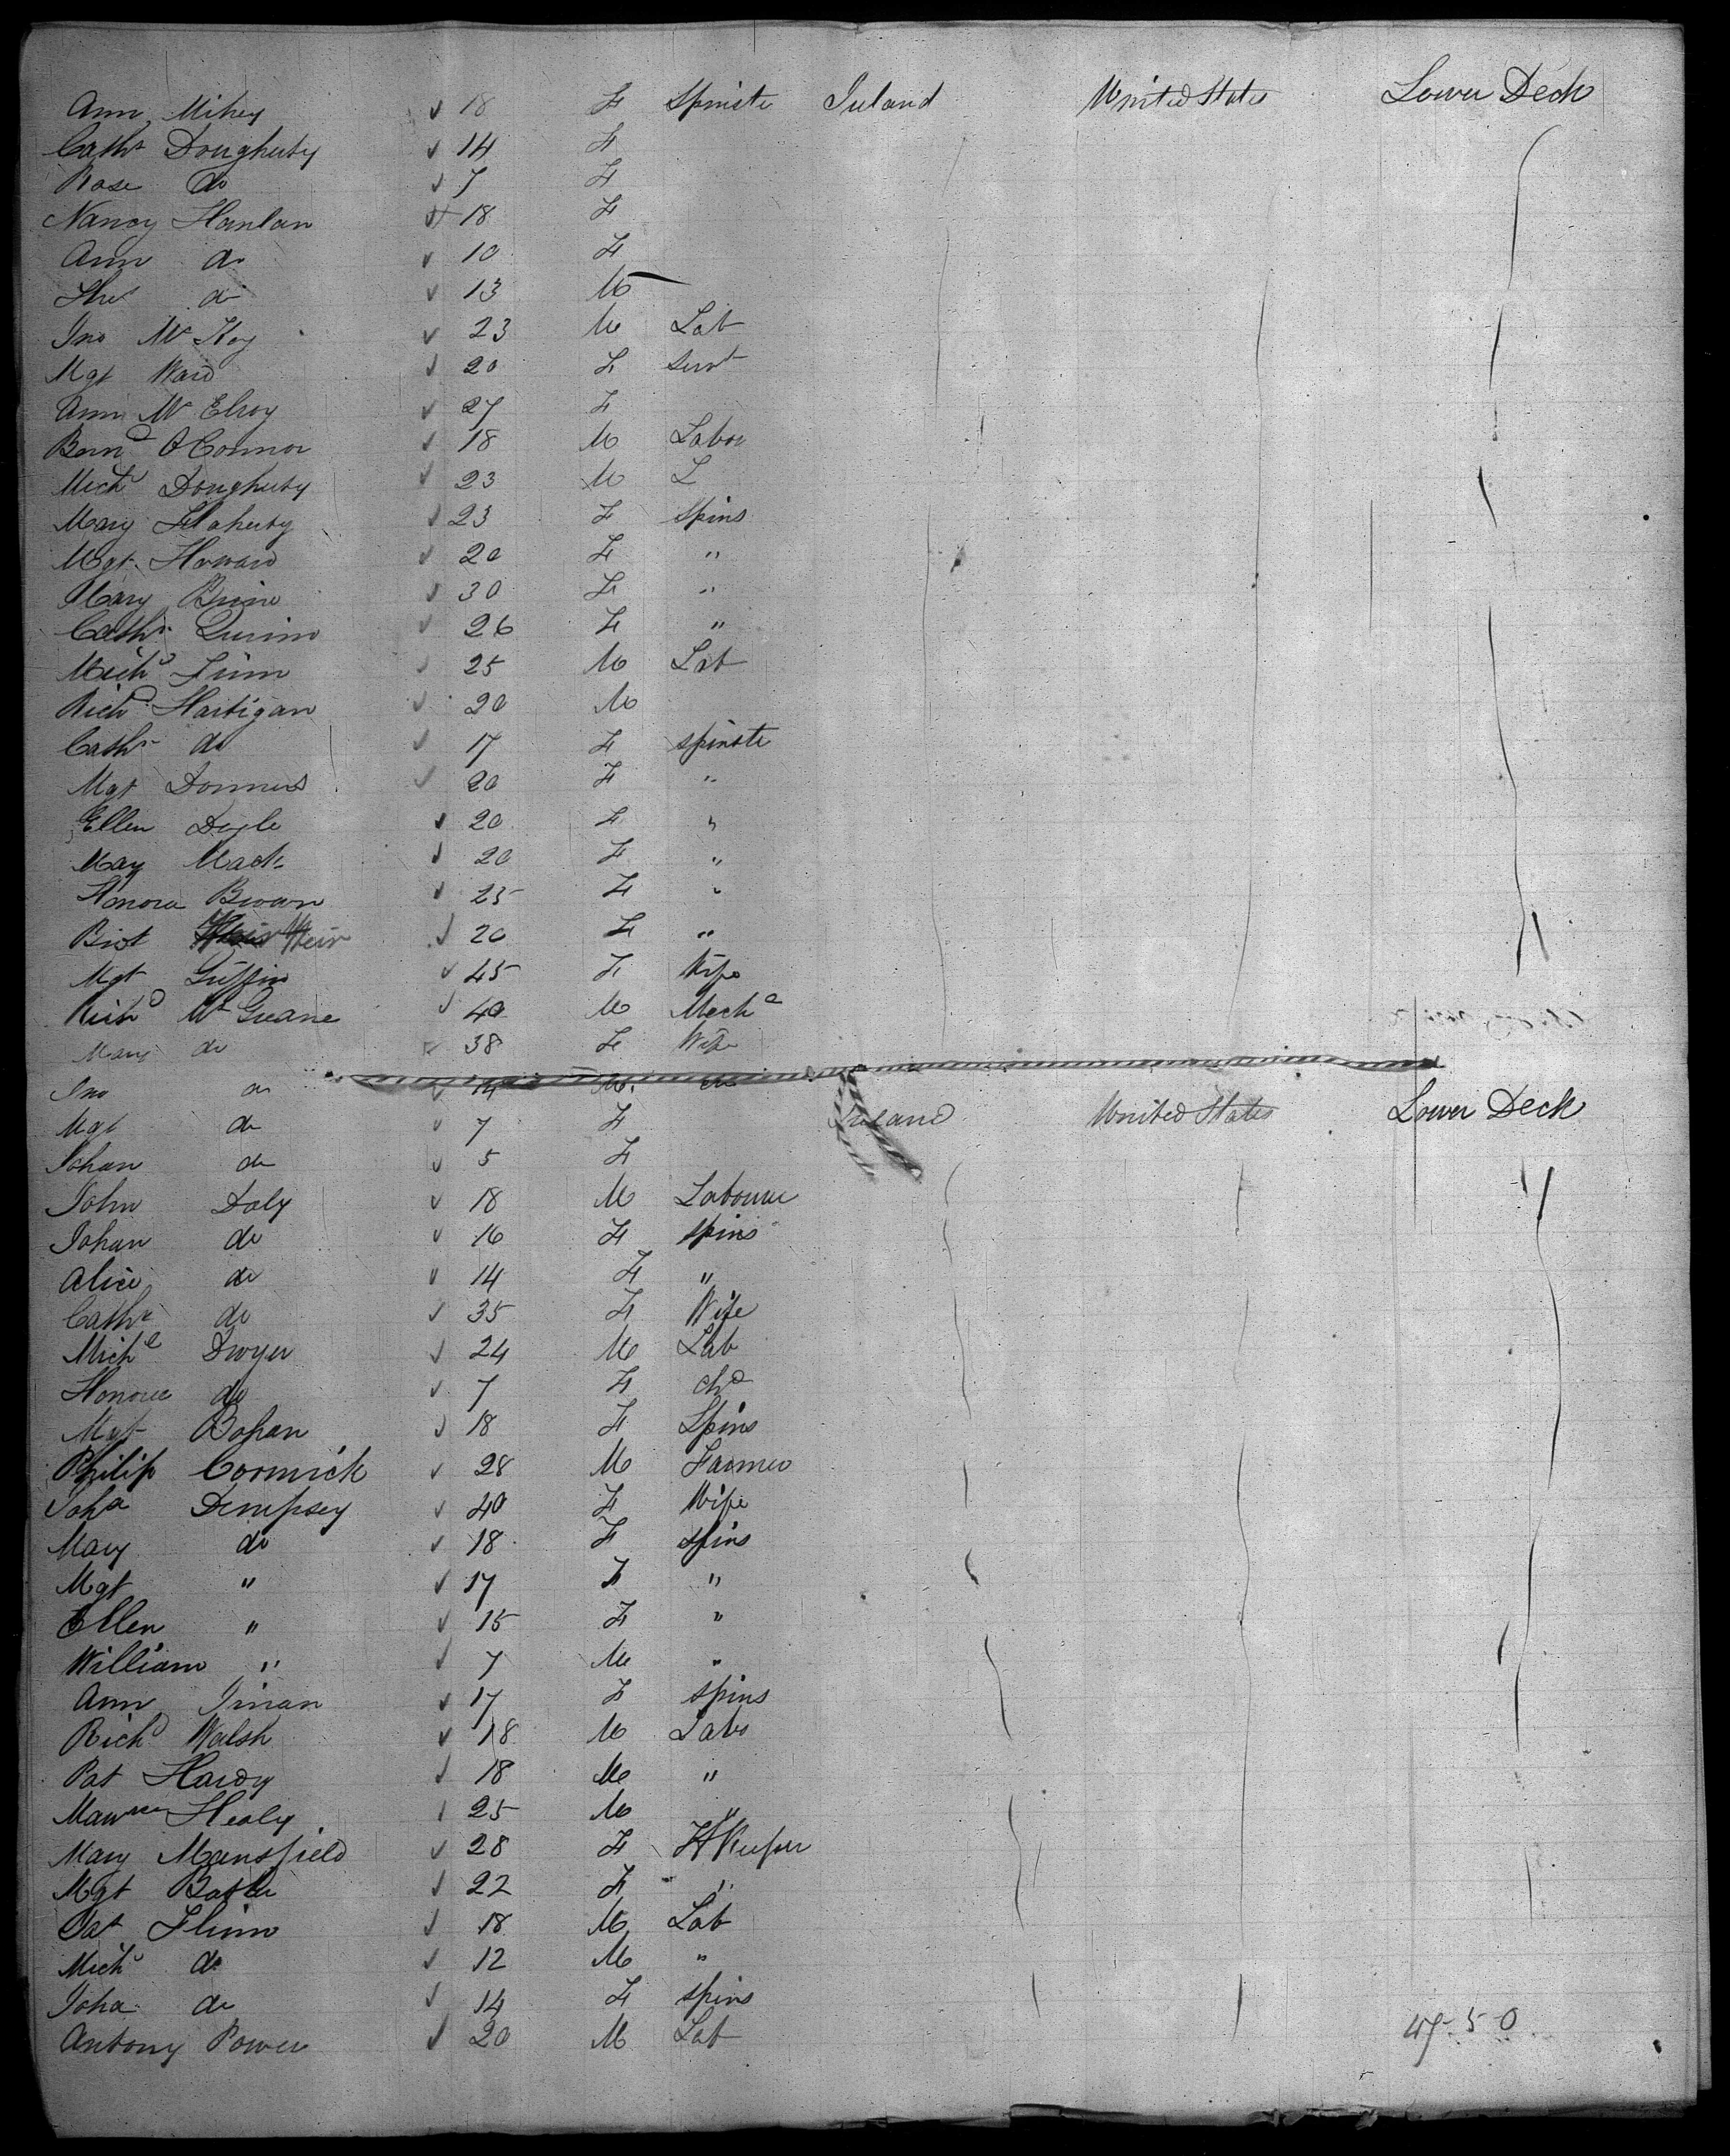 Ann Mihey 18 F Spinste Ireland United States Lower Deck
Cathe Dougherty 14 F
Rose do 7 F
Nancy Hanlan 18 F
Ann do 10 F
do 13 M
Jno McKoy 23 M Lab
Mgt Ward 20 F Servt
Ann McElroy 27 F
Bernd O'Connor 18 M Labor
Michl Dougherty 23 M L
Mary Flaherty 23 F Spins
Mgt Howard 20 F "
Mary Brine 30 F "
Cathe Quinn 26 F "
Michl Finn 25 M Lab
Richd Hartigan 20 M
Cathe do 17 F spinste
Mgt 20 F "
Ellen Doyle 20 F "
May Mack 20 F "
Honora Brown 25 F "
Bist Weir 20 F "
Mgt Griffin 45 F Wife
Richd McGreane 40 M Mech
Mary do 38 F Wife
Jno do 14 M
Mgt do 7 F Ireland United States Lower Deck
Johan do 5 F
John Daly 18 M Labourer
Johan do 16 F spins
Alice do 14 F "
Cathe do 35 F Wife
Michl Dwyer 24 M Lab
Honora do 7 F chd
Mgt Bohan 18 F Spins
Philip Cormick 28 M Farmer
Joha Dempsey 40 F Wife
Mary do 18 F spins
Mgt " 17 F "
Ellen " 15 F "
William " 7 M "
Ann 17 F spins
Richd Walsh 18 M Labo
Pat Hardy 18 M "
Healy 25 M "
Mary Mansfield 28 F H Keeper
Mgt Butler 22 F "
Pat Flinn 18 M Lab
Michl do 12 M "
Joha do 14 F spins
Antony Power 20 M Lab